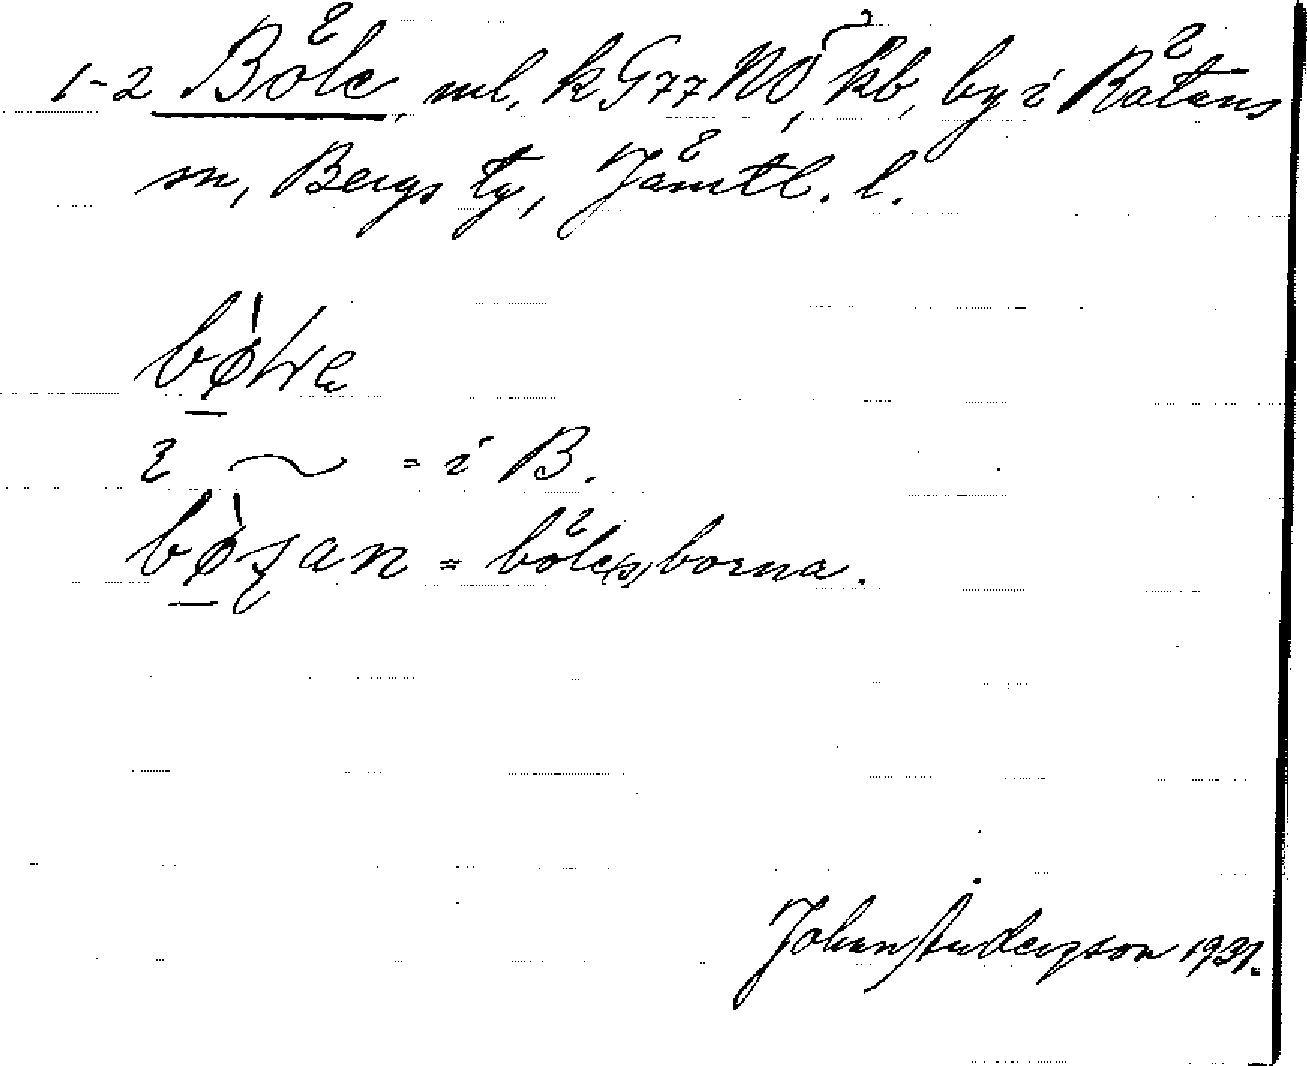 1-2 Böle, ml, k G77 NO, kb, by i Rätans
sn, Bergs tg, Jämtl. l.
= i B.
= böle(s)borna.
Johan Anderson 1931.